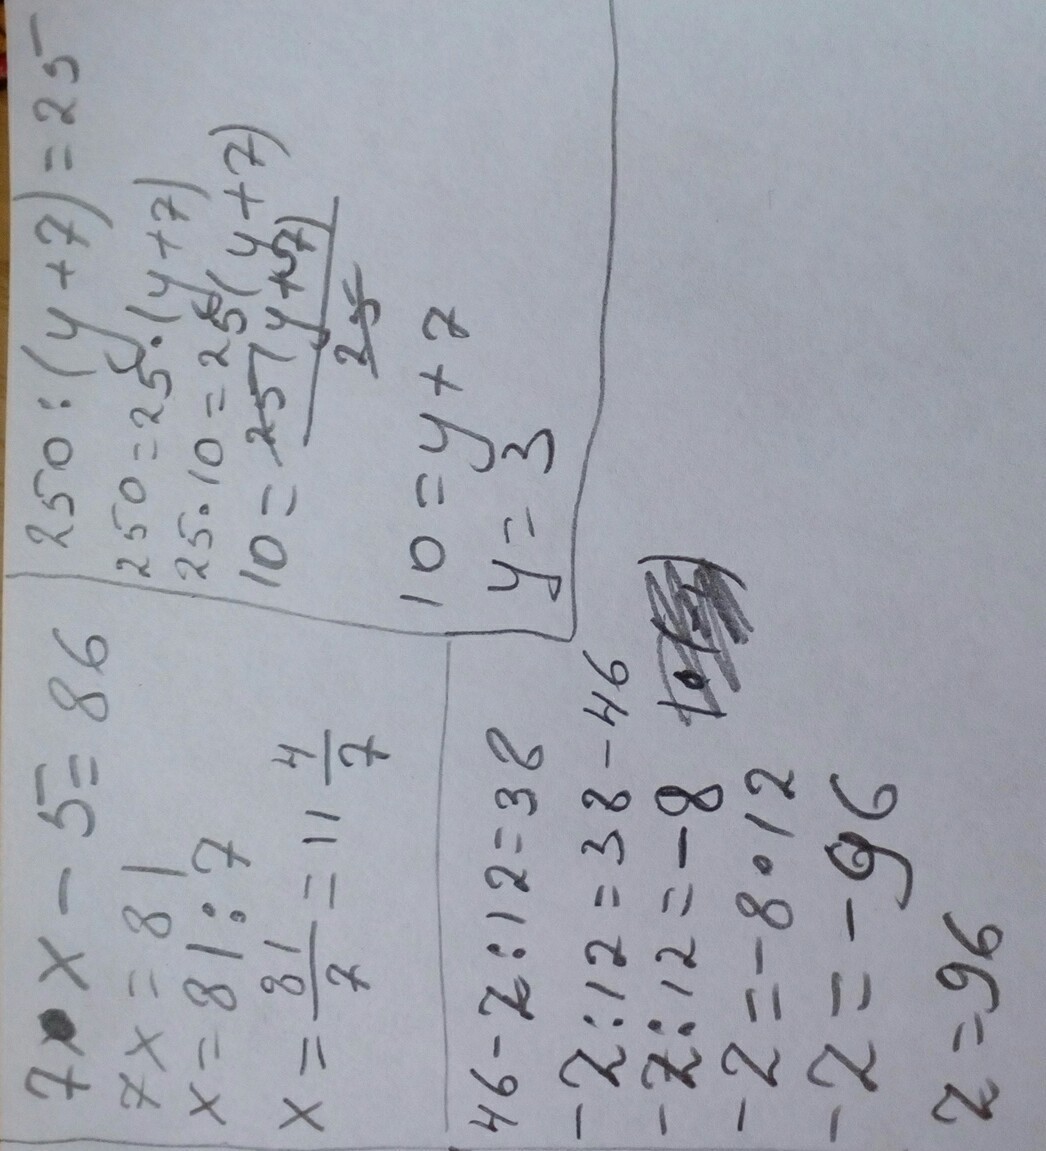 7 • x - 5 = 86
7x = 81
x = 81 : 7
x = 81/7 = 11 4/7
250 : (y + 7) = 25
250 = 25 • (y + 7)
25 • 10 = 25 (y + 7)
10 = 25 (y + 7) / 25
10 = y + 7
y = 3
46 - z : 12 = 38
- z : 12 = 38 - 46
- z : 12 = - 8
- z = - 8 • 12
- z = - 96
z = 96